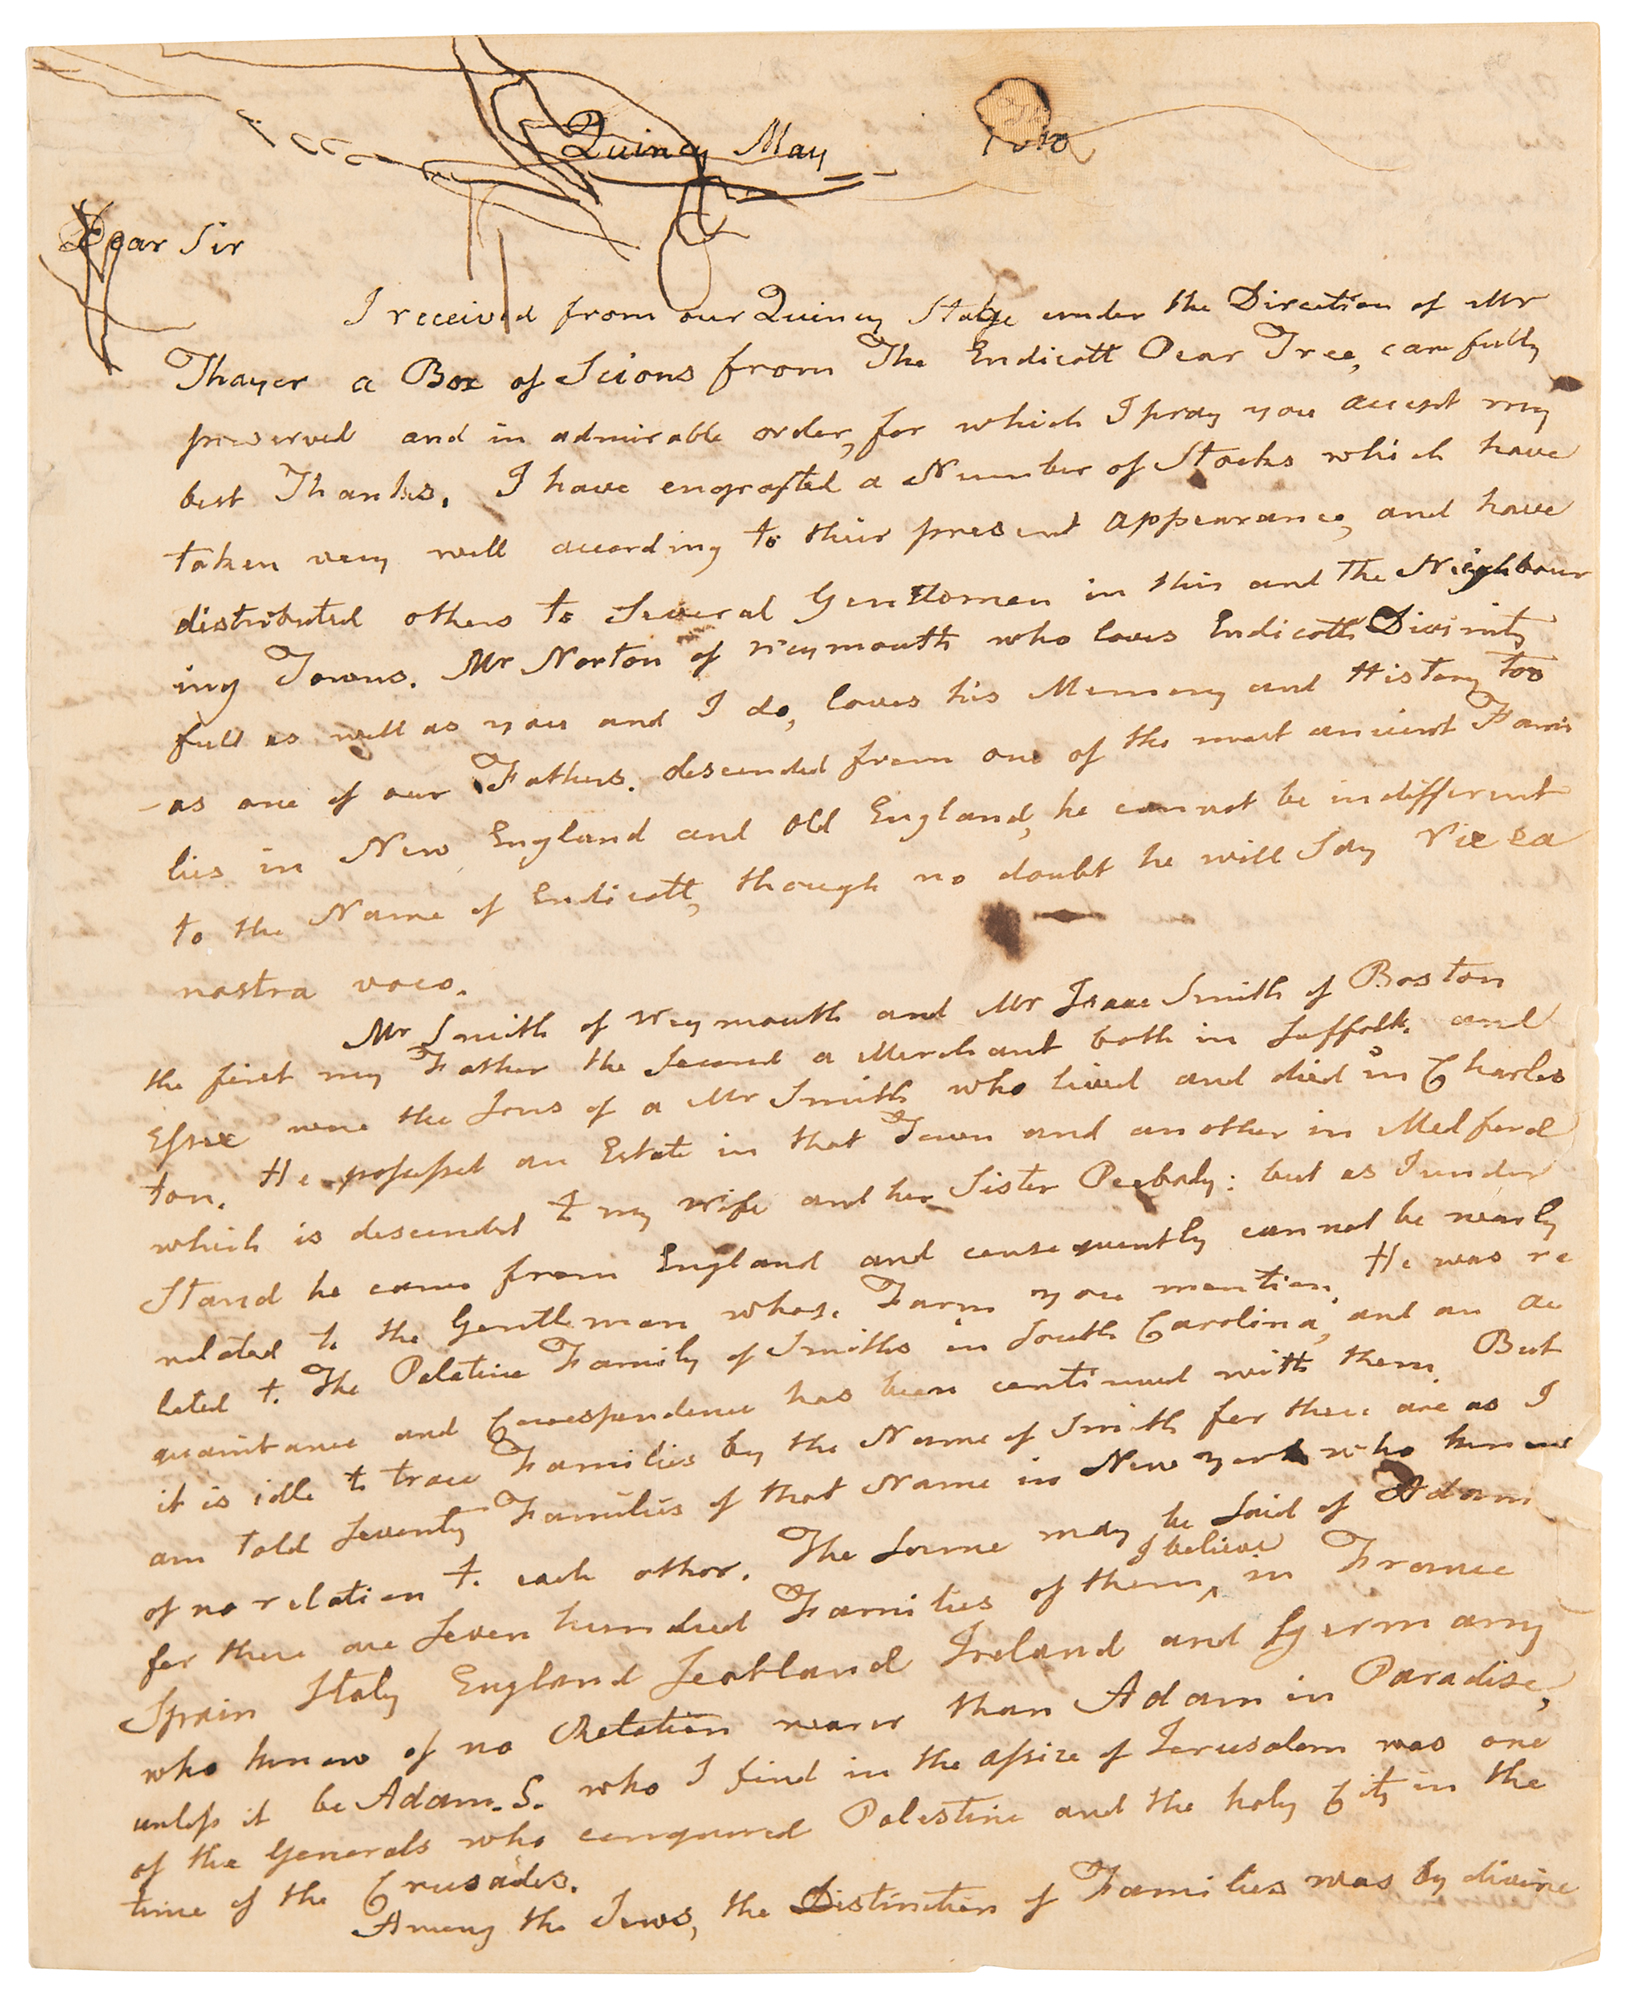 Quincy May
Dear Sir
I received from our Quincy Stage under the Direction of Mr
Thayer a Box of Scions from The Endicott Pear Tree, carefully
preserved and in admirable order, for which I pray you accept my
best Thanks. I have engrafted a Number of Stocks which have
taken very well according to their present appearance, and have
distributed others to Several Gentlemen in this and the Neighbour
ing Towns. Mr Norton of Weymouth who loves Endicotts Divinity
full as well as you and I do, loves his Memory and History too
as one of our Fathers. descended from one of the most ancient Fami
lies in New England and Old England, he cannot be indifferent
to the Name of Endicott, though no doubt he will Say Vix ea
nostra voco.
Mr Smith of Weymouth and Mr Isaac Smith of Boston
the first my Father the Second a Merchant both in Suffolk. and
Essex were the Sons of a Mr Smith who lived and died in Charles
ton. He possessed an Estate in that Town and another in Medford
which is descended to my Wife and her Sister Peabody: but as I under
Stand he came from England and consequently cannot be nearly
related to the Gentleman whose Farm you mention. He was re
lated to The Palatine Family of Smiths in South Carolina, and an ac
quaintance and Correspondence has been continued with them. But
it is idle to trace Families by the Name of Smith for there are as I
am told Seventy Families of that Name in New York who know
of no relation to each other. The Same may be Said of Adams
for there are Seven hundred Families of them, I believe in France
Spain Italy England Scotland Ireland and Germany
who know of no Relation nearer than Adam in Paradise,
unless it be Adam. S. who I find in the assize of Jerusalem was one
of the Generals who conquered Palestine and the holy City in the
time of the Crusades.
Among the Jews, the Distinction of Families was by divine